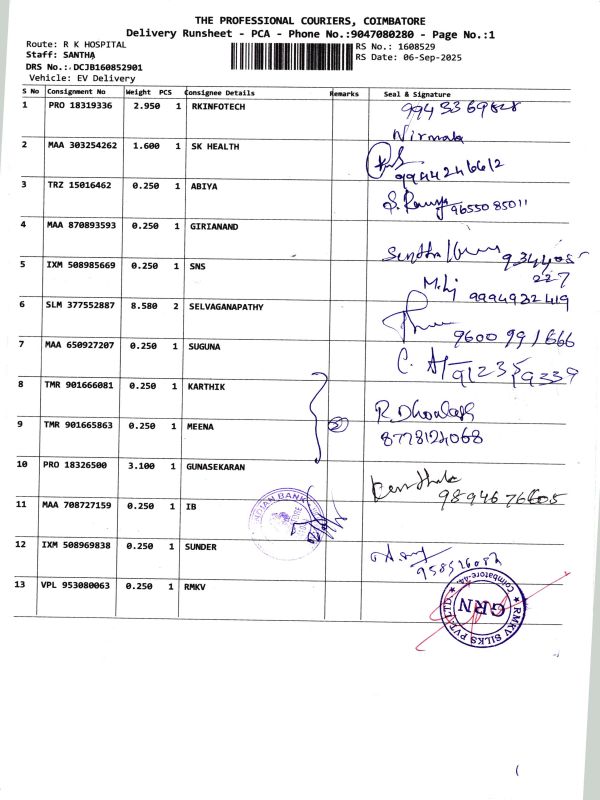 THE PROFESSIONAL COURIERS, COIMBATORE
Delivery Runsheet - PCA - Phone No.:9047080280 - Page No.:1
Route: R K HOSPITAL
RS No.: 1608529
Staff: SANTHA
RS Date: 06-Sep-2025
DRS No.:.DCJB160852901
Vehicle: EV Delivery
S No Consignment No Weight PCS Consignee Details Remarks Seal & Signature
1 PRO 18319336 2.950 1 RKINFOTECH
Nirmala
2 MAA 303254262 1.600 1 SK HEALTH
99942246612
3 TRZ 15016462 0.250 1 ABIYA 9655085011
4 MAA 870893593 0.250 1 GIRIANAND
5 IXM 508985669 0.250 1 SNS
227
9994922419
6 SLM 377552887 8.580 2 SELVAGANAPATHY
9600991666
7 MAA 650927207 0.250 1 SUGUNA
8 TMR 901666081 0.250 1 KARTHIK
9 TMR 901665863 0.250 1 MEENA
8778124068
10 PRO 18326500 3.100 1 GUNASEKARAN
9894676605
11 MAA 708727159 0.250 1 IB
INDIAN BANK
12 IXM 508969838 0.250 1 SUNDER
13 VPL 953080063 0.250 1 RMKV
RMKV SILKS PVT LTD
GRN